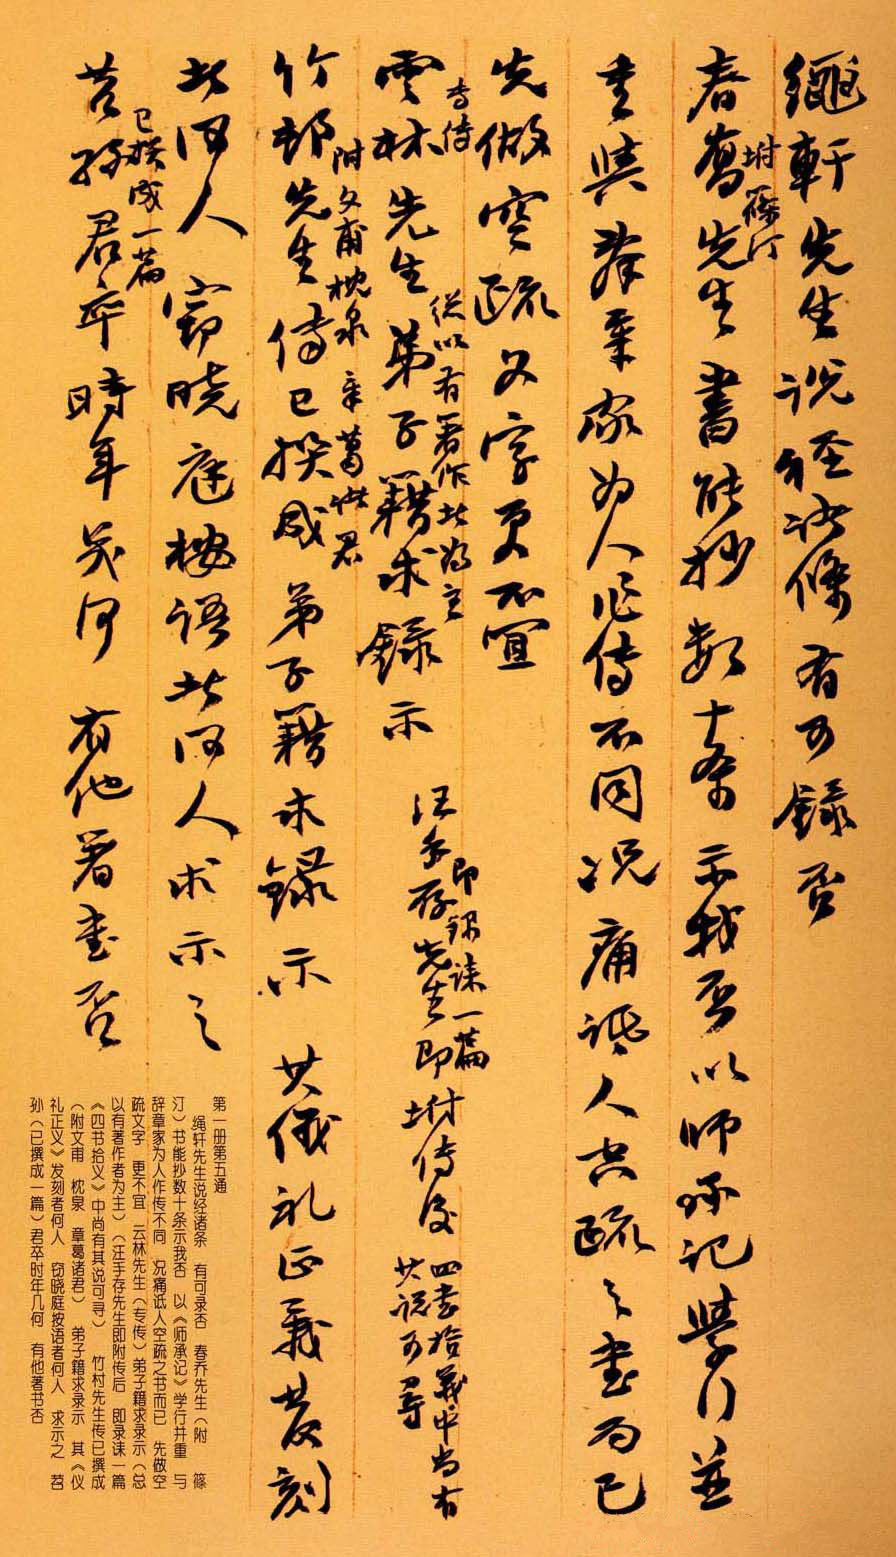 繩軒先生説經諸條 有可録否
春喬先生
坿篠汀
書能抄數十條示我否 以師承記學行並
重 與辭章家为人作傳不同 况痛詆人空疏之書而已
先做空疏文字更不宜
雲林先生
専傳
弟子籍求録示
総以有著作者为主
汪手存先生即坿傳後
即録誄一篇
四書拾義中尚有
其説可尋
竹邨先生傳已撰成
附文甫枕泉 章葛諸君
弟子籍求録示 其儀礼正義發刻
者何人 竊曉庭按語者何人求示之
苕孫君卒時年㡬何 有他著書否
已撰成一篇
第一册第五通
绳轩先生说经诸条 有可录否 春乔先生（附 篠
汀）书能抄数十条示我否 以《师承记》学行并重 与
辞章家为人作传不同 况痛诋人空疏之书而已 先做空
疏文字 更不宜 云林先生（专传）弟子籍求录示（总
以有著作者为主）（汪手存先生即附传后 即录诔一篇
《四书拾义》中尚有其说可寻） 竹村先生传已撰成
（附文甫 枕泉 章葛诸君） 弟子籍求录示 其《仪
礼正义》发刻者何人 窃晓庭按语者何人 求示之 苕
孙（已撰成一篇）君卒时年几何 有他著书否